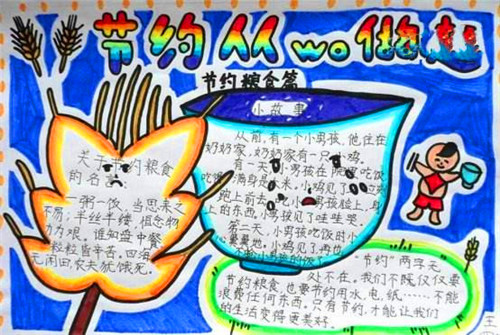 节约从wo做起
节约粮食篇
小故事
关于节约粮食
的名言
一粥一饭,当思来之
不易;半丝半缕,恒念物
力为艰。谁知盘中餐
粒粒皆辛苦。四海
无闲田,农夫犹饿死。
从前,有一个小男孩,他住在
奶奶家,奶奶家有一只小鸡。
有一天,小男孩在院里吃饭
吃得满身是米,小鸡见了
跑上前去,小男孩脸上、身
上的东西,小男孩见了哇哇哭。
第二天,小男孩吃饭时小
心翼翼地,小鸡见了再也
“节约”两字无
处不在。我们不仅仅要
节约粮食,也要节约用水、电、纸……不能
浪费任何东西。只有节约,才能让我们
的生活变得更美好。